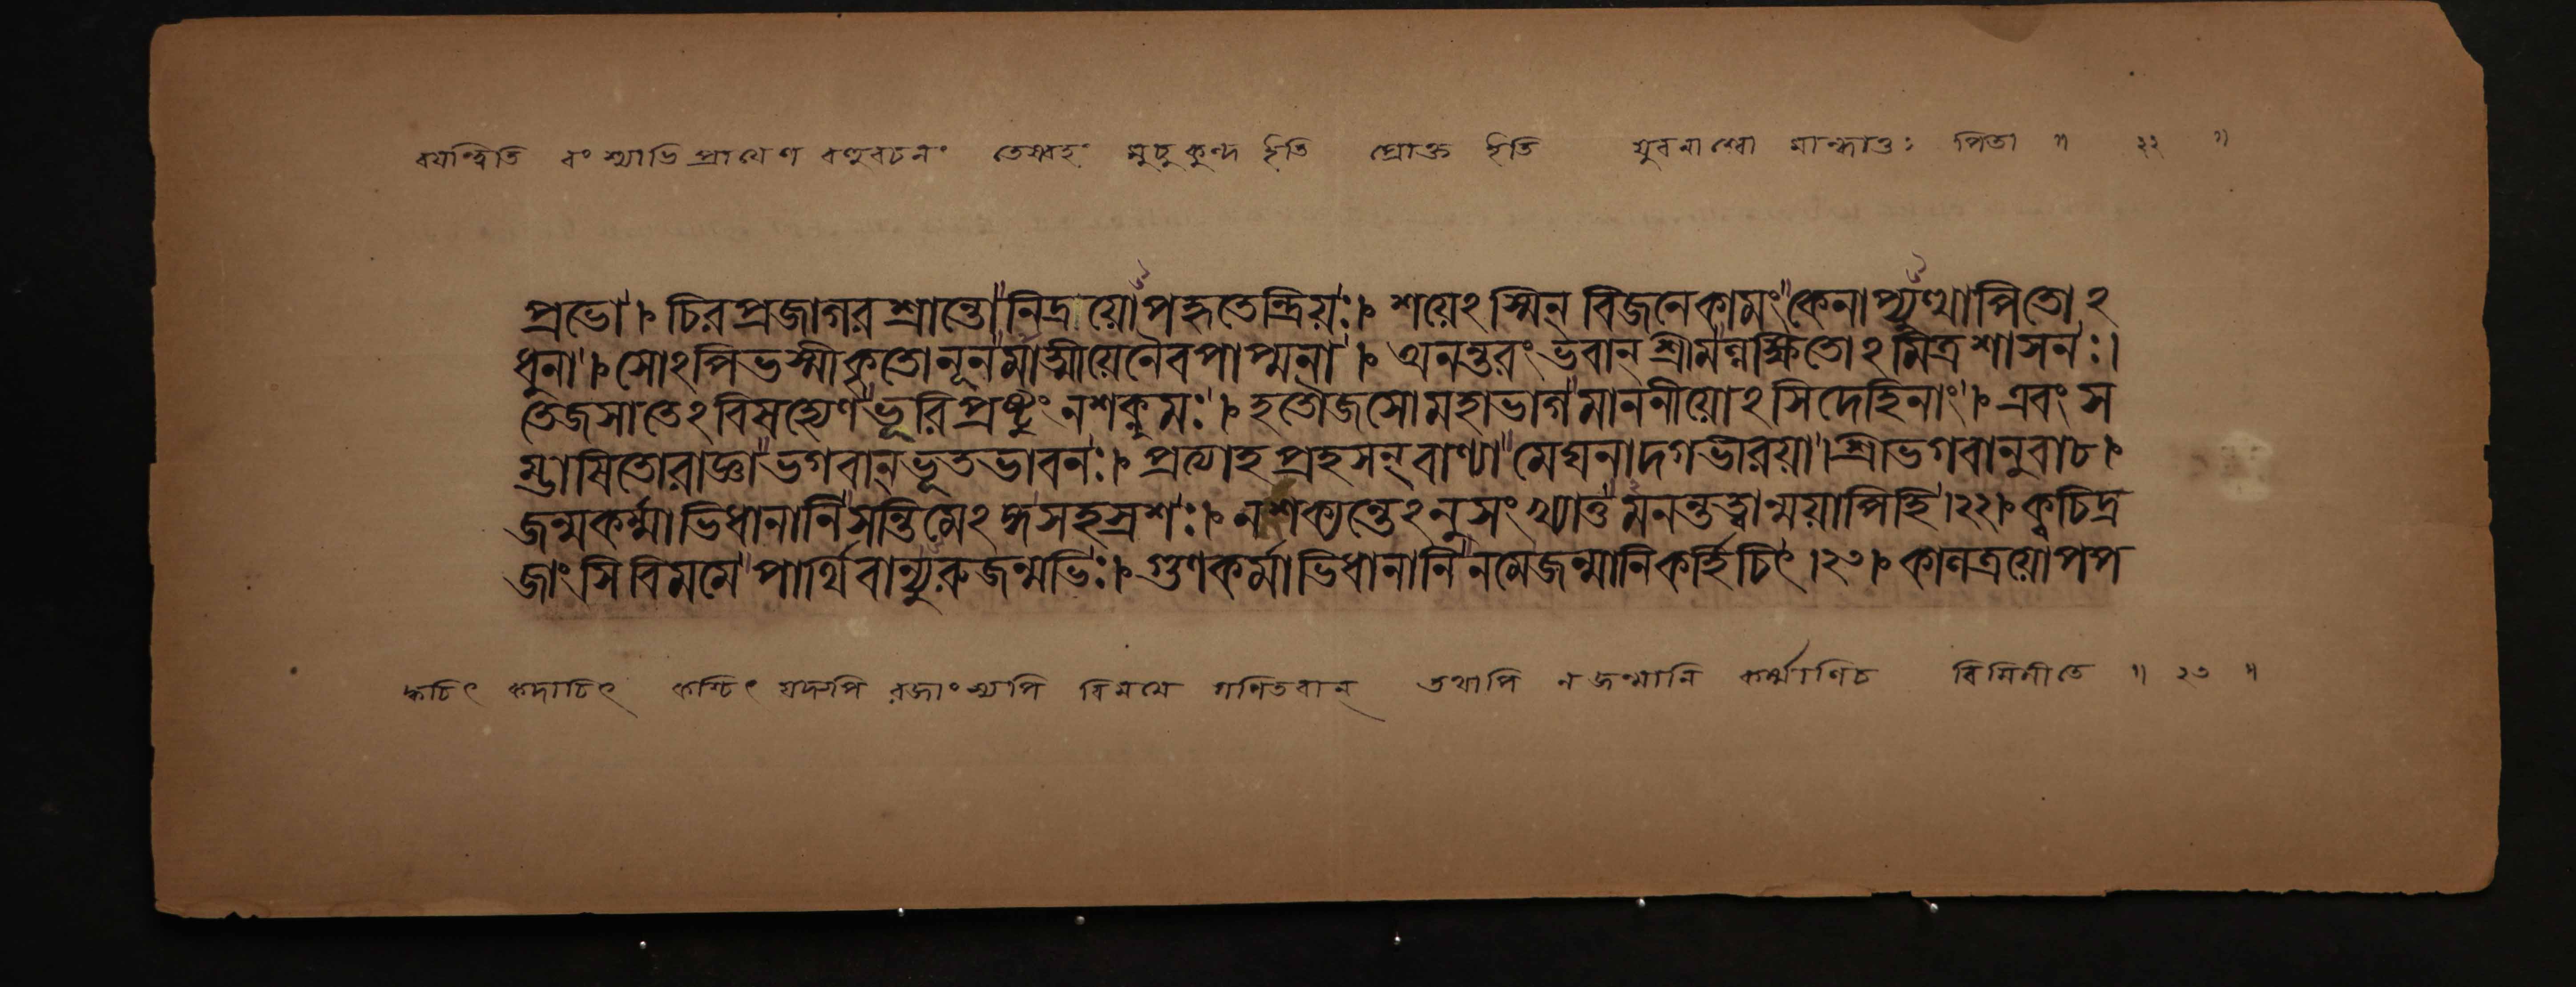 বযন্ত্বিতি বংশ্যাভিপ্রায়েণ বহুবচনং তেষ্বহং মুচুকুন্দ ইতি প্রোক্ত ইতি যুবনাশ্বো মান্ধাতুঃ পিতা ॥ ২২ ॥
প্রভো । চিরপ্রজাগরশ্রান্তো নিদ্রয়োপহৃতেন্দ্রিয়ঃ । শয়েঽস্মিন্ বিজনেকামং কেনাপ্যুত্থাপিতোঽ
ধুনা । সোঽপিভস্মীকৃতোনূনমাত্মীয়েনৈবপাপ্মনা । অনন্তরং ভবান্ শ্রীমল্লক্ষিতোঽমিত্রশাসনঃ ।
তেজসাতেঽবিষহ্যেণ ভূরিদ্রষ্টুং নশক্নুমঃ । হতৌজসোমহাভাগ মাননীয়োঽসিদেহিনাং । এবং স
ম্ভাষিতোরাজ্ঞা ভগবান্ভূতভাবনঃ । প্রত্যাহ প্রহসন্ বাণ্যা মেঘনাদগভীরয়া । শ্রীভগবানুবাচ ।
জন্মকর্ম্মাভিধানানি সন্তি মেঽঙ্গসহস্রশঃ । নশক্যন্তেঽনুসংখ্যাতুমনন্তত্বান্ময়াপিহি । ২২ । ক্বচিদ্র
জাংসি বিমমে পার্থিবান্যুরুজন্মভিঃ । গুণকর্মাভিধানানি নমেজন্মানিকর্হিচিৎ । ২৩ । কালত্রয়োপপ
ক্কচিৎ কদাচিৎ কশ্চিৎ যদ্যপি রজাংস্যপি বিমমে গণিতবান্ তথাপি ন জন্মানি কর্ম্মাণিচ বিমিমীতে ॥ ২৩ ॥